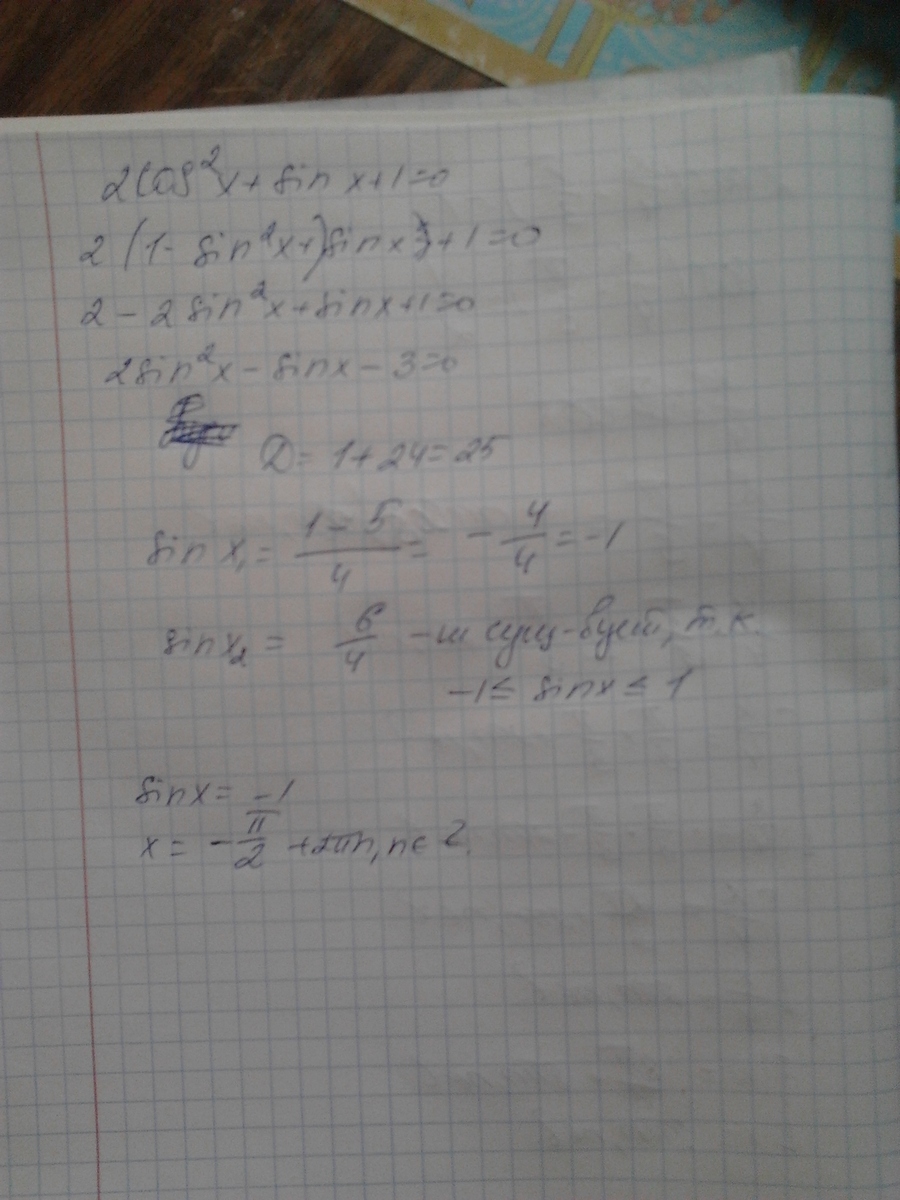 2cos²x + sin x + 1 = 0
2(1 - sin²x+)sinx + 1 = 0
2 - 2sin²x + sinx + 1 = 0
2sin²x - sinx - 3 = 0
D = 1 + 24 = 25
sin x₁ = (1 - 5)/4 = -4/4 = -1
sinx₂ = 6/4 - сущ-вует, т.к.
-1 ≤ sinx ≤ 1
sinx = -1
x = -π/2 + 2πn, n ∈ Z.